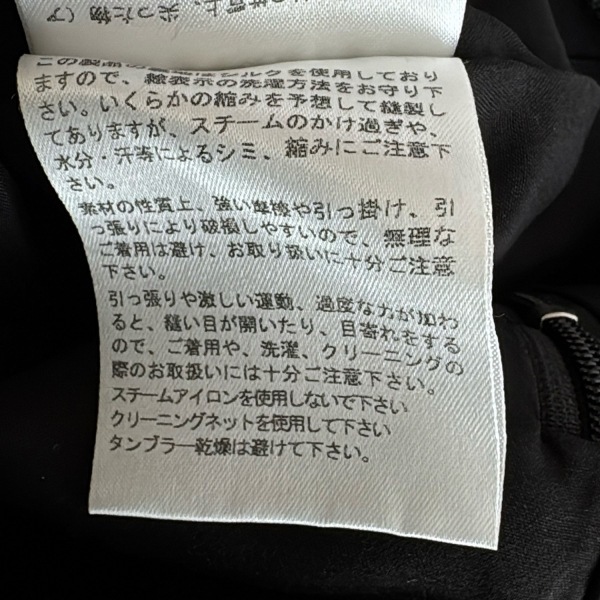 この製品の シルクを使用しており
ますので、絵表示の洗濯方法をお守り下
さい。いくらかの縮みを予想して縫製し
てありますが、スチームのかけ過ぎや、
水分・汗等によるシミ、縮みにご注意下
さい。
素材の性質上、強い摩擦や引っ掛け、引
っ張りにより破損しやすいので、無理な
ご着用は避け、お取り扱いに十分ご注意
下さい。
引っ張りや激しい運動、過度な力が加わ
ると、縫い目が開いたり、目寄れをする
ので、ご着用や、洗濯、クリーニングの
際のお取扱いには十分ご注意下さい。
スチームアイロンを使用しないで下さい
クリーニングネットを使用して下さい
タンブラー乾燥は避けて下さい。